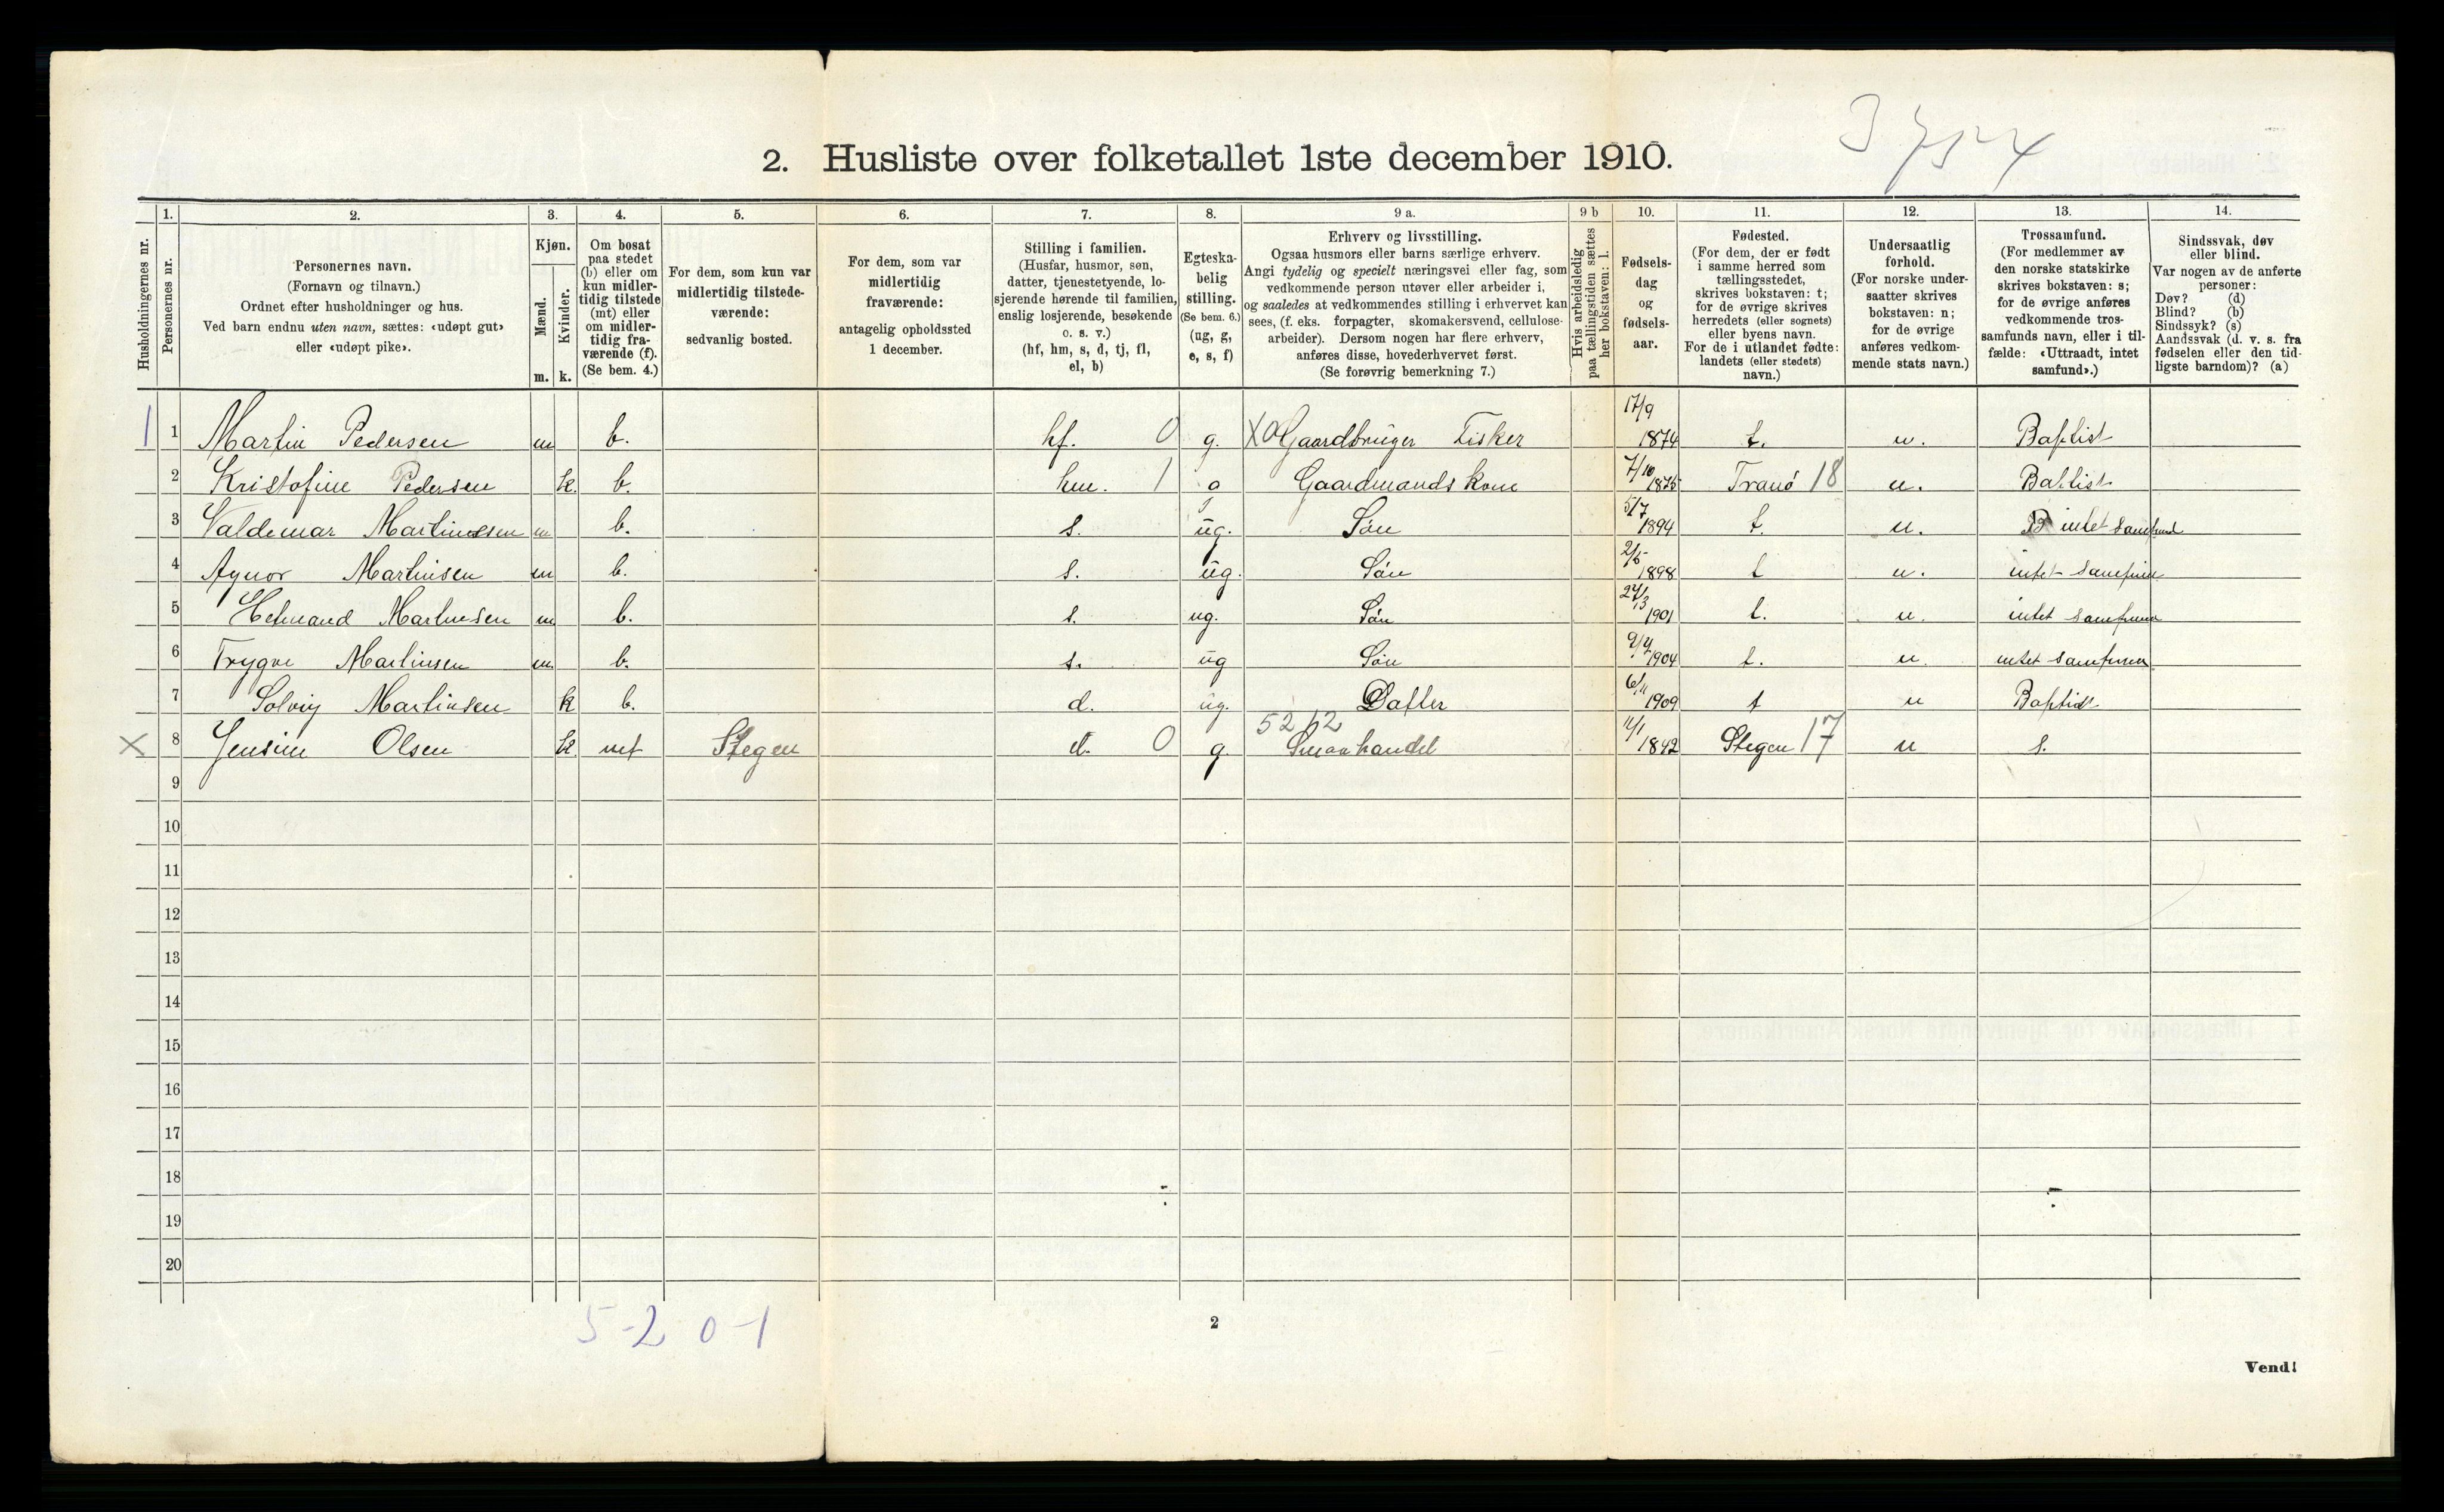 3754
2. Husliste over folketallet 1ste december 1910.
1. 2. 3. 4. 5. 6. 7. 8. 9 a. 9 b 10. 11. 12. 13. 14.
Husholdningernes nr.
Personernes nr.
Personernes navn.
(Fornavn og tilnavn.)
Ordnet efter husholdninger og hus.
Ved barn endnu uten navn, sættes: «udøpt gut»
eller «udøpt pike».
Kjøn.
Mænd.
Kvinder.
m. k.
Om bosat
paa stedet
(b) eller om
kun midler-
tidig tilstede
(mt) eller
om midler-
tidig fra-
værende (f).
(Se bem. 4.)
For dem, som kun var
midlertidig tilstede-
værende:
sedvanlig bosted.
For dem, som var
midlertidig
fraværende:
antagelig opholdssted
1 december.
Stilling i familien.
(Husfar, husmor, søn,
datter, tjenestetyende, lo-
sjerende hørende til familien,
enslig losjerende, besøkende
o. s. v.)
(hf, hm, s, d, tj, fl,
el, b)
Egteska-
belig
stilling.
(Se bem. 6.)
(ug, g,
e, s, f)
Erhverv og livsstilling.
Ogsaa husmors eller barns særlige erhverv.
Angi tydelig og specielt næringsvei eller fag, som
vedkommende person utøver eller arbeider i,
og saaledes at vedkommendes stilling i erhvervet kan
sees, (f. eks. forpagter, skomakersvend, cellulose-
arbeider). Dersom nogen har flere erhverv,
anføres disse, hovederhvervet først.
(Se forøvrig bemerkning 7.)
Hvis arbeidsledig
paa tællingstiden sættes
her bokstaven: l.
Fødsels-
dag
og
fødsels-
aar.
Fødested.
(For dem, der er født
i samme herred som
tællingsstedet,
skrives bokstaven: t;
for de øvrige skrives
herredets (eller sognets)
eller byens navn.
For de i utlandet fødte:
landets (eller stedets)
navn.)
Undersaatlig
forhold.
(For norske under-
saatter skrives
bokstaven: n;
for de øvrige
anføres vedkom-
mende stats navn.)
Trossamfund.
(For medlemmer av
den norske statskirke
skrives bokstaven: s;
for de øvrige anføres
vedkommende tros-
samfunds navn, eller i til-
fælde: «Uttraadt, intet
samfund».)
Sindssvak, døv
eller blind.
Var nogen av de anførte
personer:
Døv? (d)
Blind? (b)
Sindssyk? (s)
Aandssvak (d. v. s. fra
fødselen eller den tid-
ligste barndom)? (a)
1 1 Martin Pedersen m b. hf. 0 g. X0 Gaardbruger Fisker 17/9 1874 t. n. Baptist
2 Kristofine Pedersen k. b. hm. 1 g Gaardmands kone 7/10 1875 Tranö 18 n. Batlist
3 Valdemar Martinsen m b. s. ug. Sön 5/7 1894 t. n. B intet samfund
4 Agnor Martinsen m b. s. ug. Sön 2/5 1898 t n. intet samfun
5 Hetmand Martinsen m b. s. ug. Sön 24/3 1901 t. n. intet samfund
6 Trygve Martinsen m. b. s. ug Sön 9/4 1904 t. n. intet samfun
7 Solvig Martinsen k b. d. ug. Datter 6/11 1909 t n Baptist
X 8 Jensine Olsen k. mt Stegen d. 0 g 5262 Smaahandel 11/1 1842 Stegen 17 n s.
9
10
11
12
13
14
15
16
17
18
19
20
5-2 0-1
2
Vend!